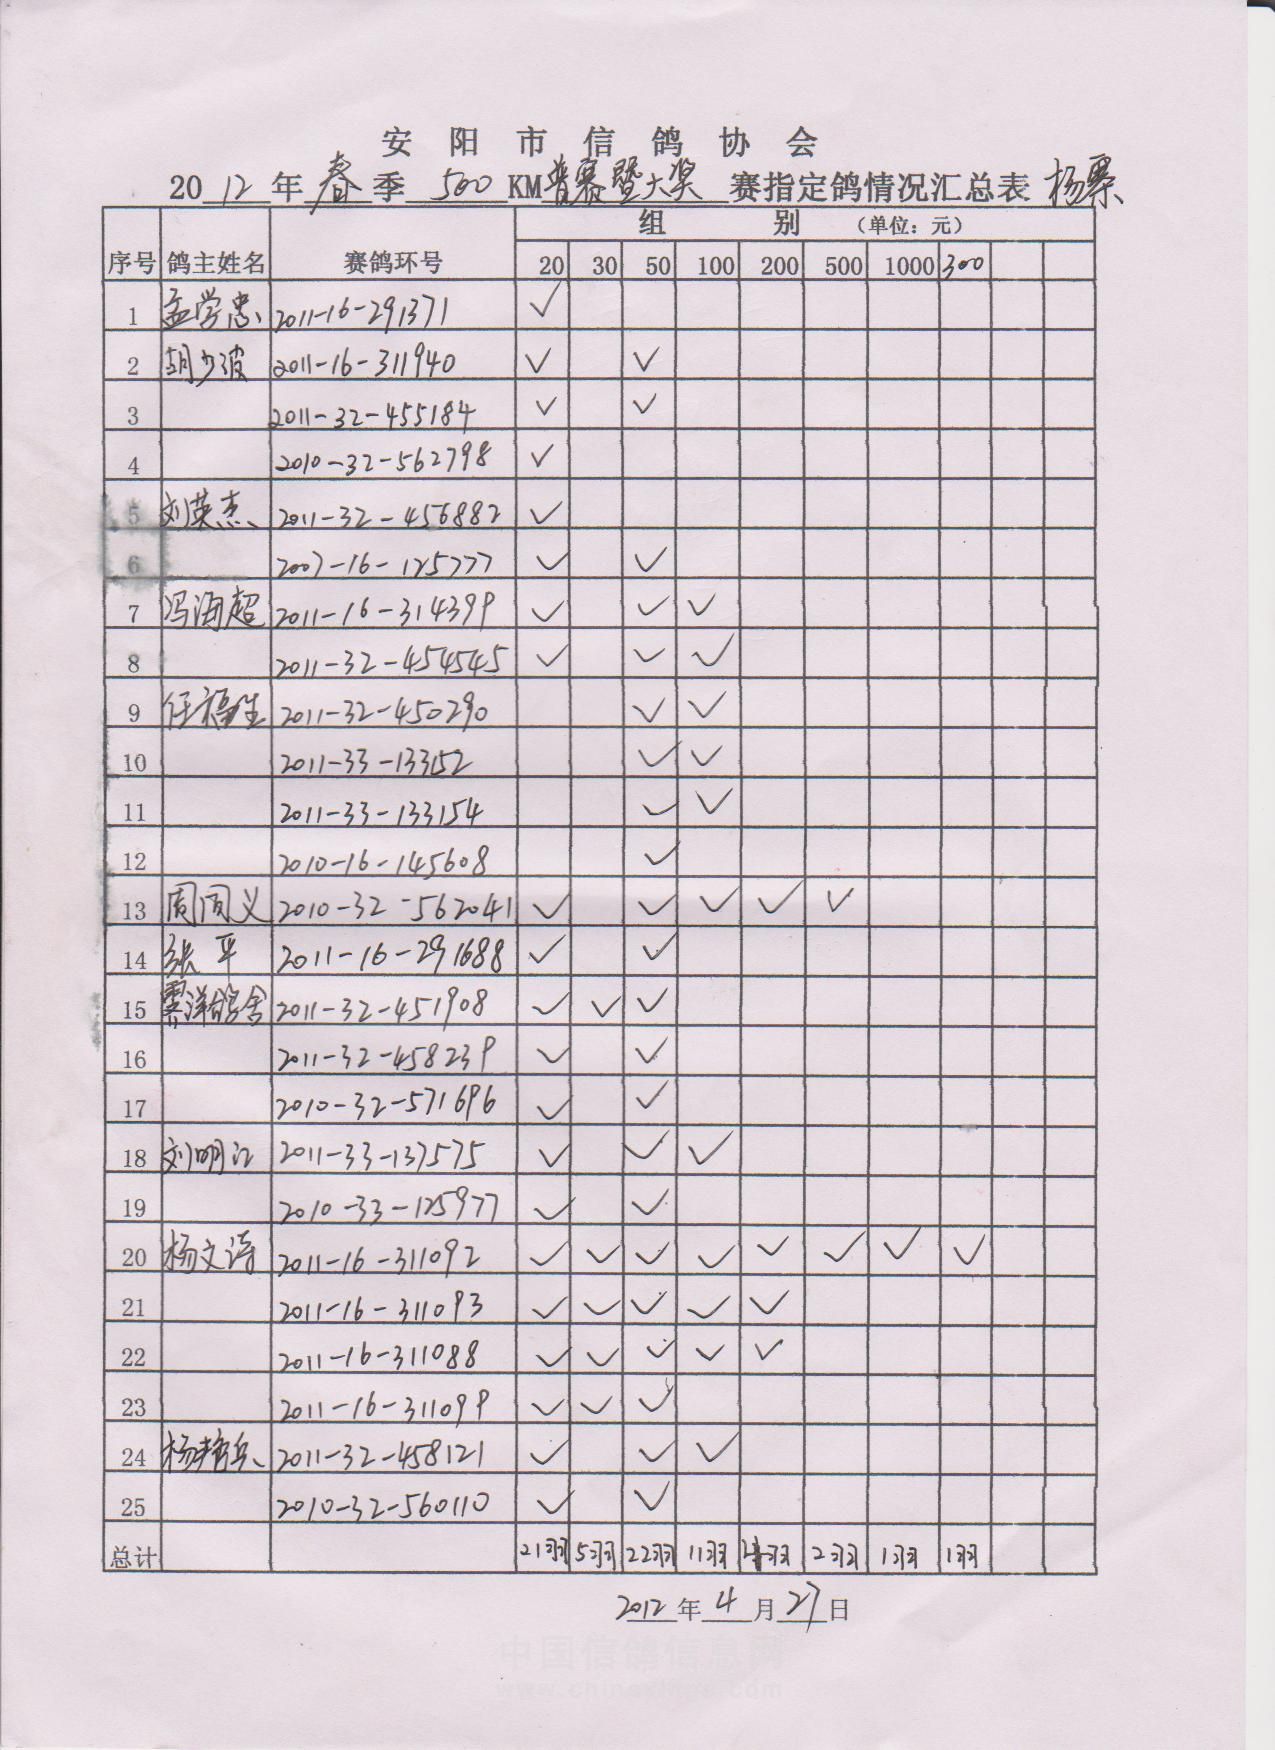 安阳市信鸽协会
2012年春季500KM普赛暨大奖赛指定鸽情况汇总表 杨寨
序号 鸽主姓名 赛鸽环号 组别 （单位：元）
20 30 50 100 200 500 1000 300
1 孟学忠 2011-16-291371 ✓
2 胡少波 2011-16-311940 ✓ ✓
3 2011-32-455184 ✓ ✓
4 2010-32-562798 ✓
5 刘英杰 2011-32-456882 ✓
6 2007-16-125777 ✓ ✓
7 冯海超 2011-16-314399 ✓ ✓ ✓
8 2011-32-454545 ✓ ✓ ✓
9 任福生 2011-32-450290 ✓ ✓
10 2011-33-133152 ✓ ✓
11 2011-33-133154 ✓ ✓
12 2010-16-145608 ✓
13 周国义 2010-32-562041 ✓ ✓ ✓ ✓ ✓
14 张平 2011-16-291688 ✓ ✓
15 洋鸽舍 2011-32-451908 ✓ ✓ ✓
16 2011-32-458239 ✓ ✓
17 2010-32-571696 ✓ ✓
18 刘明江 2011-33-137575 ✓ ✓ ✓
19 2010-33-125977 ✓ ✓
20 杨文涛 2011-16-311092 ✓ ✓ ✓ ✓ ✓ ✓ ✓ ✓
21 2011-16-311093 ✓ ✓ ✓ ✓ ✓
22 2011-16-311088 ✓ ✓ ✓ ✓ ✓
23 2011-16-311099 ✓ ✓ ✓
24 杨 兵 2011-32-458121 ✓ ✓ ✓
25 2010-32-560110 ✓ ✓
总计 21羽 5羽 22羽 11羽 4羽 2羽 1羽 1羽
2012年4月27日
中国信鸽信息网